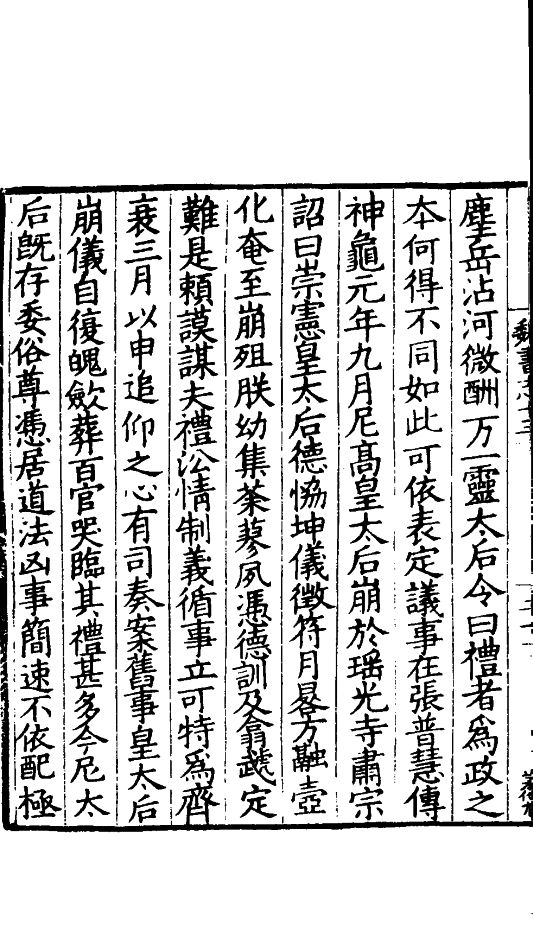 塵岳沾河微酬万一靈太后令曰禮者爲政之
夲何得不同如此可依表定議事在張普慧傳
神龜元年九月尼髙皇太后崩於瑶光寺肅宗
詔曰崇憲皇太后德恊坤儀徵符月晷方融壼
化奄至崩殂朕幼集荼蓼夙憑德訓及翕虣定
難是賴謨謀夫禮沿情制義循事立可特爲齊
衰三月以申追仰之心有司奏案舊事皇太后
崩儀自復魄歛葬百官哭臨其禮甚多今尼太
后旣存委俗尊憑居道法凶事簡速不依配極
魏書志十三